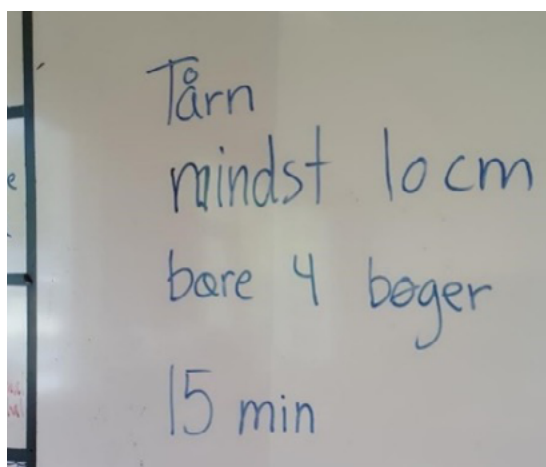 Tårn
mindst 10 cm
bære 4 bøger
15 min